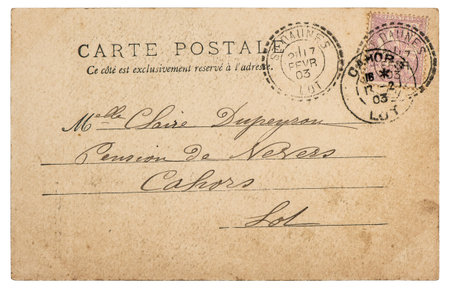 CARTE POSTALE
Ce côté est exclusivement reservé à l'adresse.
DAUNES
17
FEVR
03
LOT
DAUNES
17
03
CAHORS
17 -2
03
LOT
Melle Claire Dupeyson
Pension de Nevers
Cahors
Lot